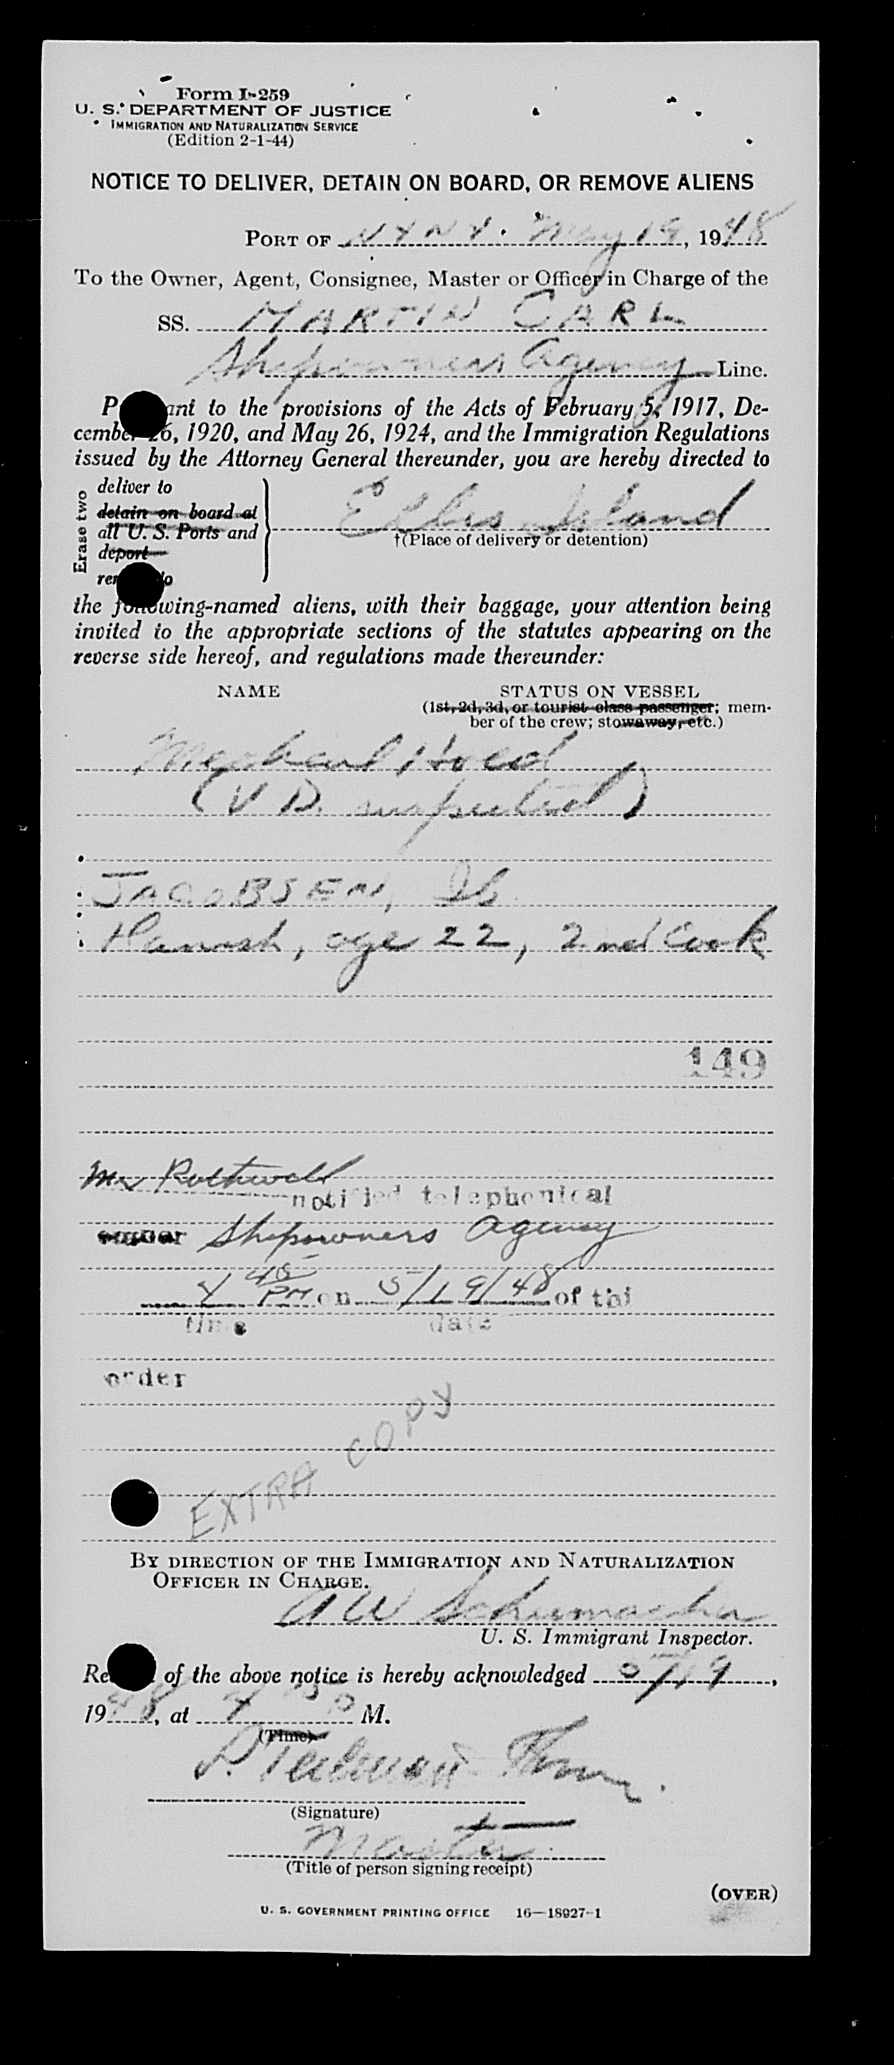 Form I-259
U. S. DEPARTMENT OF JUSTICE
IMMIGRATION AND NATURALIZATION SERVICE
(Edition 2-1-44)
NOTICE TO DELIVER, DETAIN ON BOARD, OR REMOVE ALIENS
PORT OF NYNY. May 19, 1948
To the Owner, Agent, Consignee, Master or Officer in Charge of the
SS. MARTIN CARL
Shipowners Agency Line.
P ant to the provisions of the Acts of February 5, 1917, De-
cember 26, 1920, and May 26, 1924, and the Immigration Regulations
issued by the Attorney General thereunder, you are hereby directed to
Erase two
deliver to
detain on board at
all U. S. Ports and
deport
re o
Ellis Island
†(Place of delivery or detention)
the following-named aliens, with their baggage, your attention being
invited to the appropriate sections of the statutes appearing on the
reverse side hereof, and regulations made thereunder:
NAME STATUS ON VESSEL
(1st, 2d, 3d, or tourist class passenger; mem-
ber of the crew; stowaway, etc.)
Hold
(V D. suspected)
JACOBSEN, Ib
Danish, age 22, 2nd Cook
149
Mr Rothwell
notified telephonical
Shipowners Agency
4 45 PM on 5/19/48 of thi
time date
order
EXTRA COPY
BY DIRECTION OF THE IMMIGRATION AND NATURALIZATION
OFFICER IN CHARGE.
A W Schumacher
U. S. Immigrant Inspector.
Re of the above notice is hereby acknowledged 5/19,
1948, at M.
(Time)
(Signature)
Master
(Title of person signing receipt)
(OVER)
U. S. GOVERNMENT PRINTING OFFICE 16—18927-1